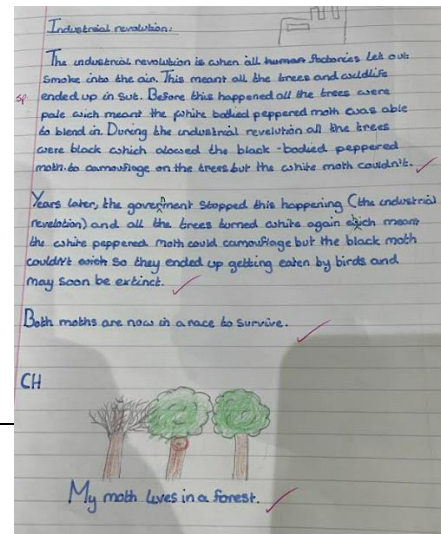 Industrial revolution:
The industrial revolution is when all human factories let out
smoke into the air. This meant all the trees and wildlife
sp ended up in sut. Before this happened all the trees were
pale wich meant the white bodied peppered moth was able
to blend in. During the industrial revelution all the trees
were black which alowed the black-bodied peppered
moth to camouflage on the trees but the white moth couldn't.
Years later, the government stopped this happening (the industrial
revelotion) and all the trees turned white again which meant
the white peppered moth could camouflage but the black moth
couldn't wich so they ended up getting eaten by birds and
may soon be extinct.
Both moths are now in a race to survive.
CH
My moth lives in a forest.